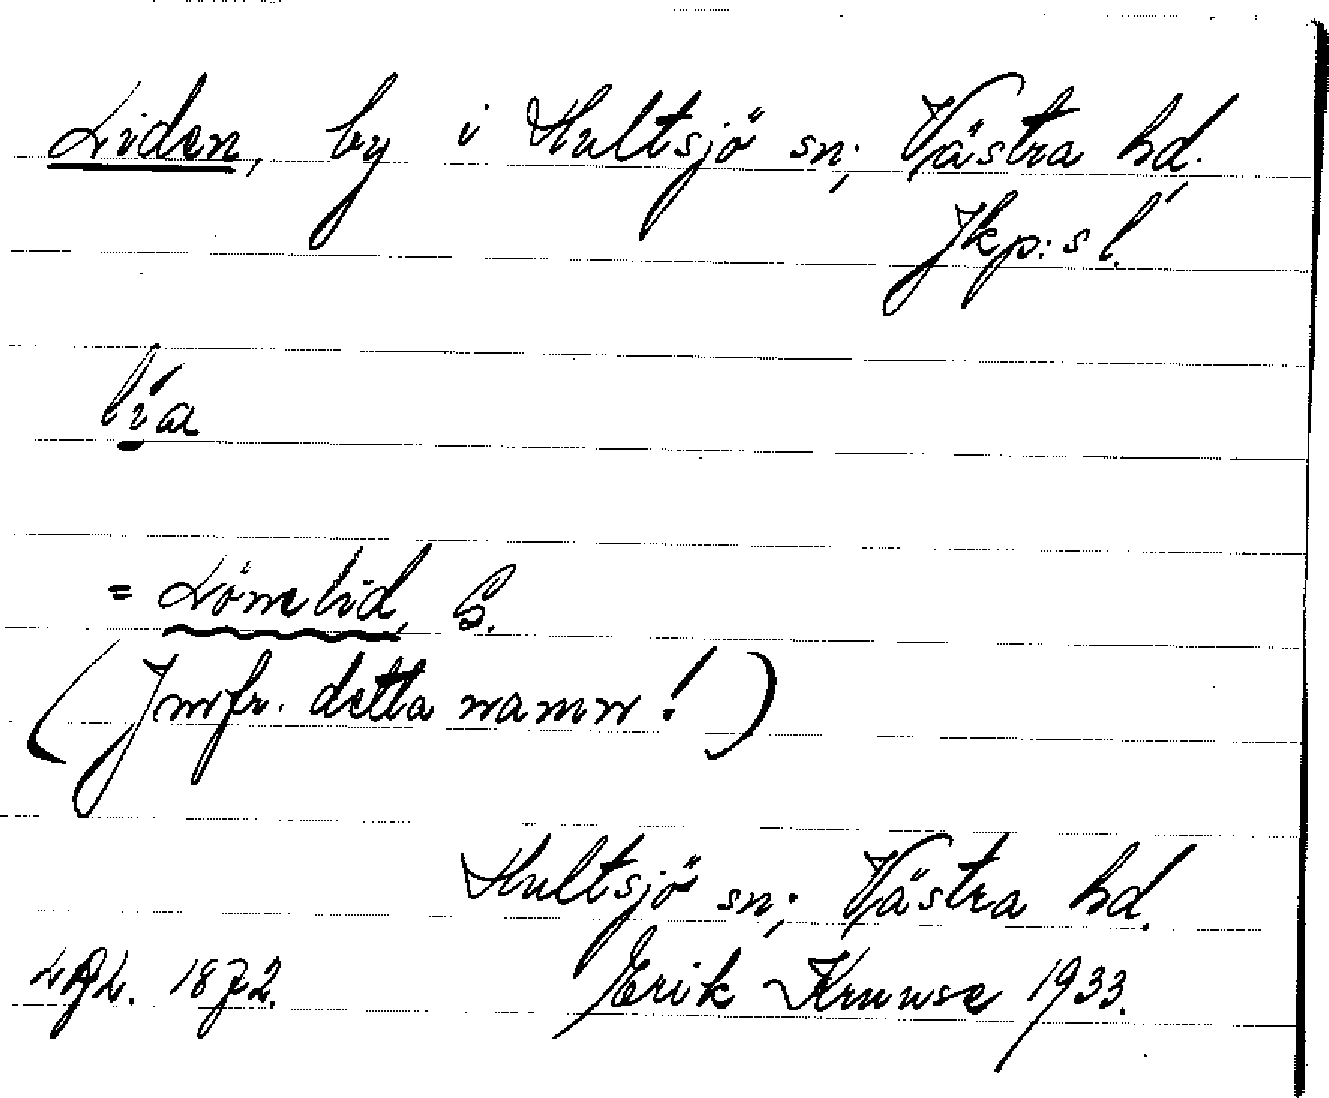 Liden, by i Hultsjö sn; Västra hd.
Jkp:s l.
lía
= Lönelid, S.
(Jmfr. detta namn!)
Hultsjö sn; Västra hd.
1872. Erik Kruuse 1933.